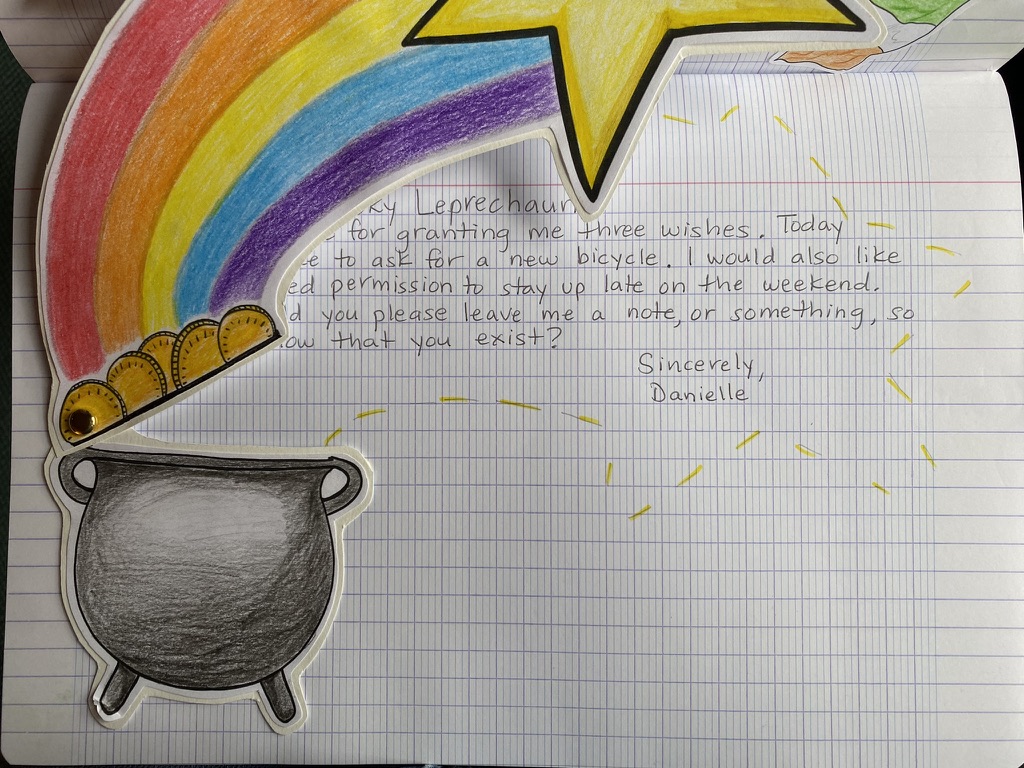 Leprechaun
for granting me three wishes. Today
to ask for a new bicycle. I would also like
permission to stay up late on the weekend.
you please leave me a note, or something, so
that you exist?
Sincerely,
Danielle